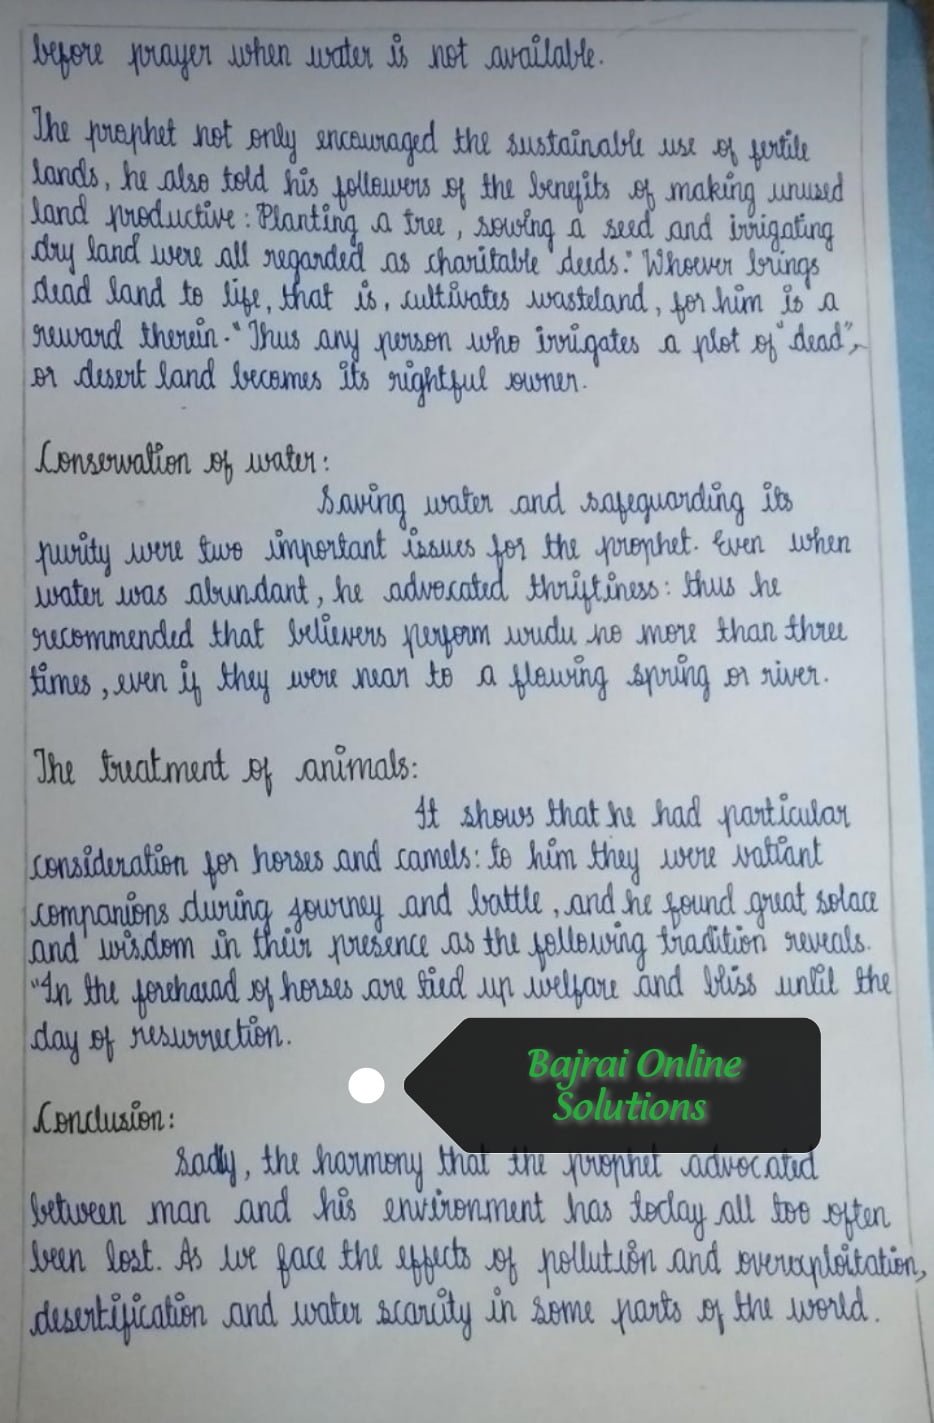 before prayer when water is not available.
The prophet not only encouraged the sustainable use of fertile
lands, he also told his followers of the benefits of making unused
land productive: Planting a tree, sowing a seed and irrigating
dry land were all regarded as charitable deeds." Whoever brings
dead land to life, that is, cultivates wasteland, for him is a
reward therein." Thus any person who irrigates a plot of "dead",
or desert land becomes its rightful owner.
Conservation of water:
Saving water and safeguarding its
purity were two important issues for the prophet. Even when
water was abundant, he advocated thriftiness: thus he
recommended that believers perform wudu no more than three
times, even if they were near to a flowing spring or river.
The treatment of animals:
It shows that he had particular
consideration for horses and camels: to him they were valiant
companions during journey and battle, and he found great solace
and wisdom in their presence as the following tradition reveals.
"In the forehaead of horses are tied up welfare and bliss until the
day of resurrection.
Bajrai Online
Solutions
Conclusion:
Sadly, the harmony that the prophet advocated
between man and his environment has today all too often
been lost. As we face the effects of pollution and overexploitation,
desertification and water scarcity in some parts of the world.